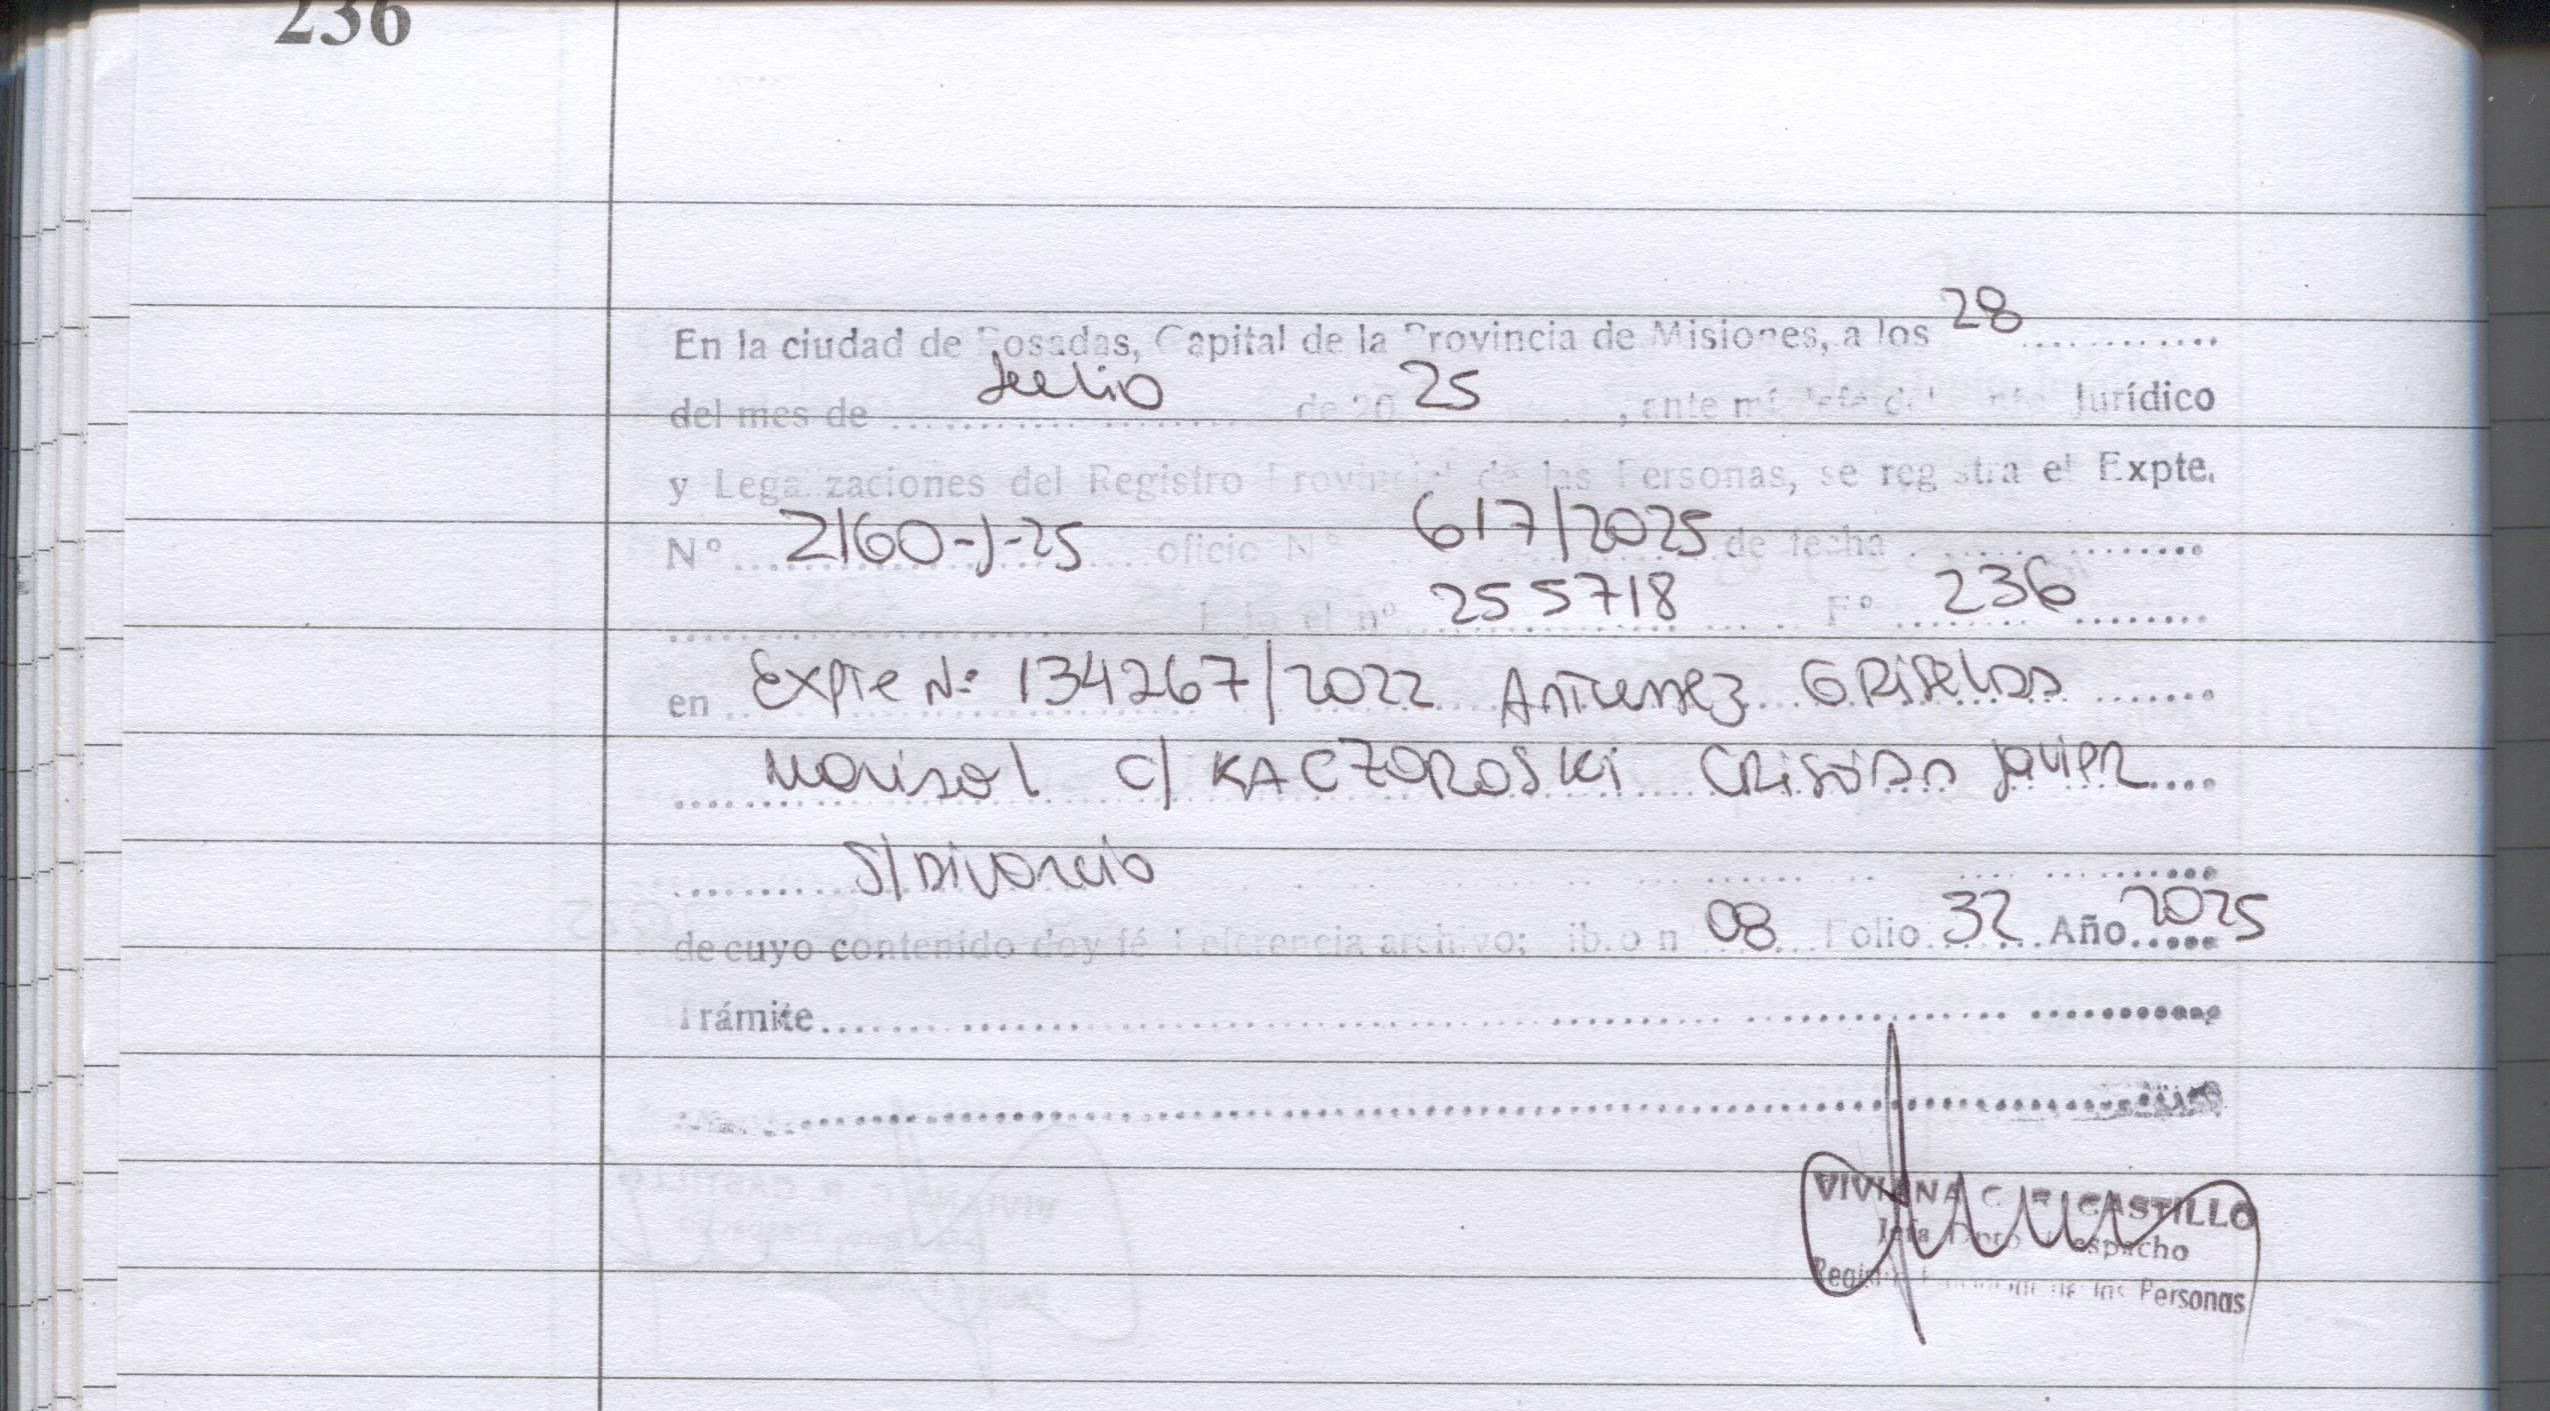 236
En la ciudad de Posadas, Capital de la Provincia de Misiones, a los 28
del mes de Julio de 20 25, ante mí Jefe del Jurídico
y Legalizaciones del Registro Provincial de las Personas, se registra el Expte.
Nº 2160-J-25 oficio Nº 617/2025 de fecha
bajo el nº 255718 Fº 236
en Expte Nº 134267/2022 Antunez Griselda
Marisol c/ KACZOROSKI Cristian Javier
S/Divorcio
de cuyo contenido doy fé Referencia archivo; libro nº 08 Folio 32 Año 2025
Trámite
VIVIANA C. R. CASTILLO
Jefa Dpto Despacho
Registro Provincial de las Personas